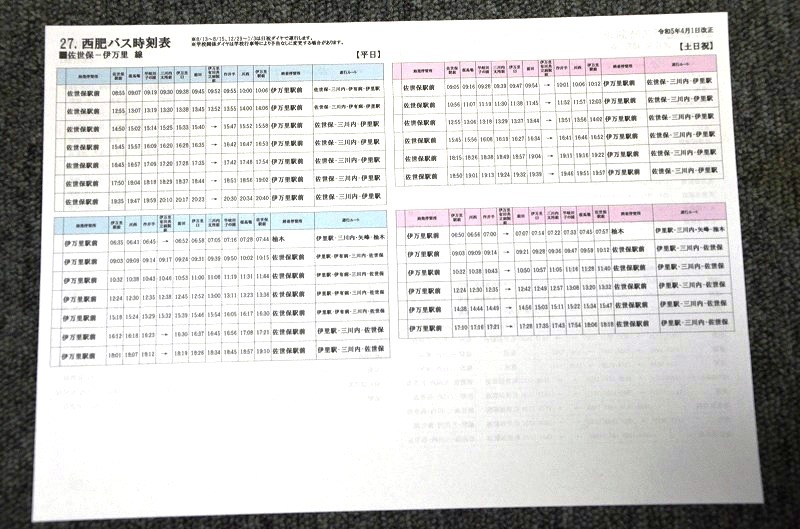 27. 西肥バス時刻表
※8/13～8/15、12/29～1/3は日祝ダイヤで運行します。
令和5年4月1日改正
■佐世保－伊万里 線
【平日】
佐世保駅前 08:55 09:07 09:19 09:30 09:38 09:45 09:52 09:55 10:00 10:06 伊万里駅前
佐世保駅前 12:55 13:07 13:19 13:30 13:38 13:45 13:52 13:55 14:00 14:06 伊万里駅前
佐世保駅前 14:50 15:02 15:14 15:25 15:33 15:40 → 15:47 15:52 15:58 伊万里駅前 佐世保・三川内・伊里駅
佐世保駅前 15:45 15:57 16:09 16:20 16:28 16:35 → 16:42 16:47 16:53 伊万里駅前 佐世保・三川内・伊里駅
佐世保駅前 16:45 16:57 17:09 17:20 17:28 17:35 → 17:42 17:48 17:54 伊万里駅前 佐世保・三川内・伊里駅
佐世保駅前 17:50 18:04 18:18 18:29 18:37 18:44 → 18:51 18:56 19:02 伊万里駅前 佐世保・三川内・伊里駅
佐世保駅前 19:35 19:47 19:59 20:10 20:17 20:23 → 20:30 20:34 20:40 伊万里駅前 佐世保・三川内・伊里駅
伊万里駅前 06:35 06:41 06:45 → 06:52 06:58 07:05 07:16 07:28 07:44 柚木 伊里駅・三川内・矢峰・柚木
伊万里駅前 09:03 09:09 09:14 09:17 09:24 09:31 09:39 09:50 10:02 10:15 佐世保駅前
伊万里駅前 10:32 10:38 10:43 10:46 10:53 11:00 11:08 11:19 11:31 11:44 佐世保駅前
伊万里駅前 12:24 12:30 12:35 12:38 12:45 12:52 13:00 13:11 13:23 13:36 佐世保駅前
伊万里駅前 15:18 15:24 15:29 15:32 15:39 15:46 15:54 16:05 16:17 16:30 佐世保駅前
伊万里駅前 16:12 16:18 16:23 → 16:30 16:37 16:45 16:56 17:08 17:21 佐世保駅前 伊里駅・三川内・佐世保
伊万里駅前 18:01 18:07 18:12 → 18:19 18:26 18:34 18:45 18:57 19:10 佐世保駅前 伊里駅・三川内・佐世保
【土日祝】
佐世保駅前 09:05 09:16 09:28 09:39 09:47 09:54 → 10:01 10:06 10:12 伊万里駅前 佐世保・三川内・伊里駅
佐世保駅前 10:56 11:07 11:19 11:30 11:38 11:45 → 11:52 11:57 12:03 伊万里駅前 佐世保・三川内・伊里駅
佐世保駅前 12:55 13:06 13:18 13:29 13:37 13:44 → 13:51 13:56 14:02 伊万里駅前 佐世保・三川内・伊里駅
佐世保駅前 15:45 15:56 16:08 16:19 16:27 16:34 → 16:41 16:46 16:52 伊万里駅前 佐世保・三川内・伊里駅
佐世保駅前 18:15 18:26 18:38 18:49 18:57 19:04 → 19:11 19:16 19:22 伊万里駅前 佐世保・三川内・伊里駅
佐世保駅前 18:50 19:01 19:13 19:24 19:32 19:39 → 19:46 19:51 19:57 伊万里駅前 佐世保・三川内・伊里駅
伊万里駅前 06:50 06:56 07:00 → 07:07 07:14 07:22 07:33 07:45 07:57 柚木 伊里駅・三川内・佐世保
伊万里駅前 09:03 09:09 09:14 → 09:21 09:28 09:36 09:47 09:59 10:12 佐世保駅前 伊里駅・三川内・佐世保
伊万里駅前 10:32 10:38 10:43 → 10:50 10:57 11:05 11:16 11:28 11:40 佐世保駅前 伊里駅・三川内・佐世保
伊万里駅前 12:24 12:30 12:35 → 12:42 12:49 12:57 13:08 13:20 13:32 佐世保駅前 伊里駅・三川内・佐世保
伊万里駅前 14:38 14:44 14:49 → 14:56 15:03 15:11 15:22 15:34 15:47 佐世保駅前 伊里駅・三川内・佐世保
伊万里駅前 17:10 17:16 17:21 → 17:28 17:35 17:43 17:54 18:06 18:18 佐世保駅前 伊里駅・三川内・佐世保